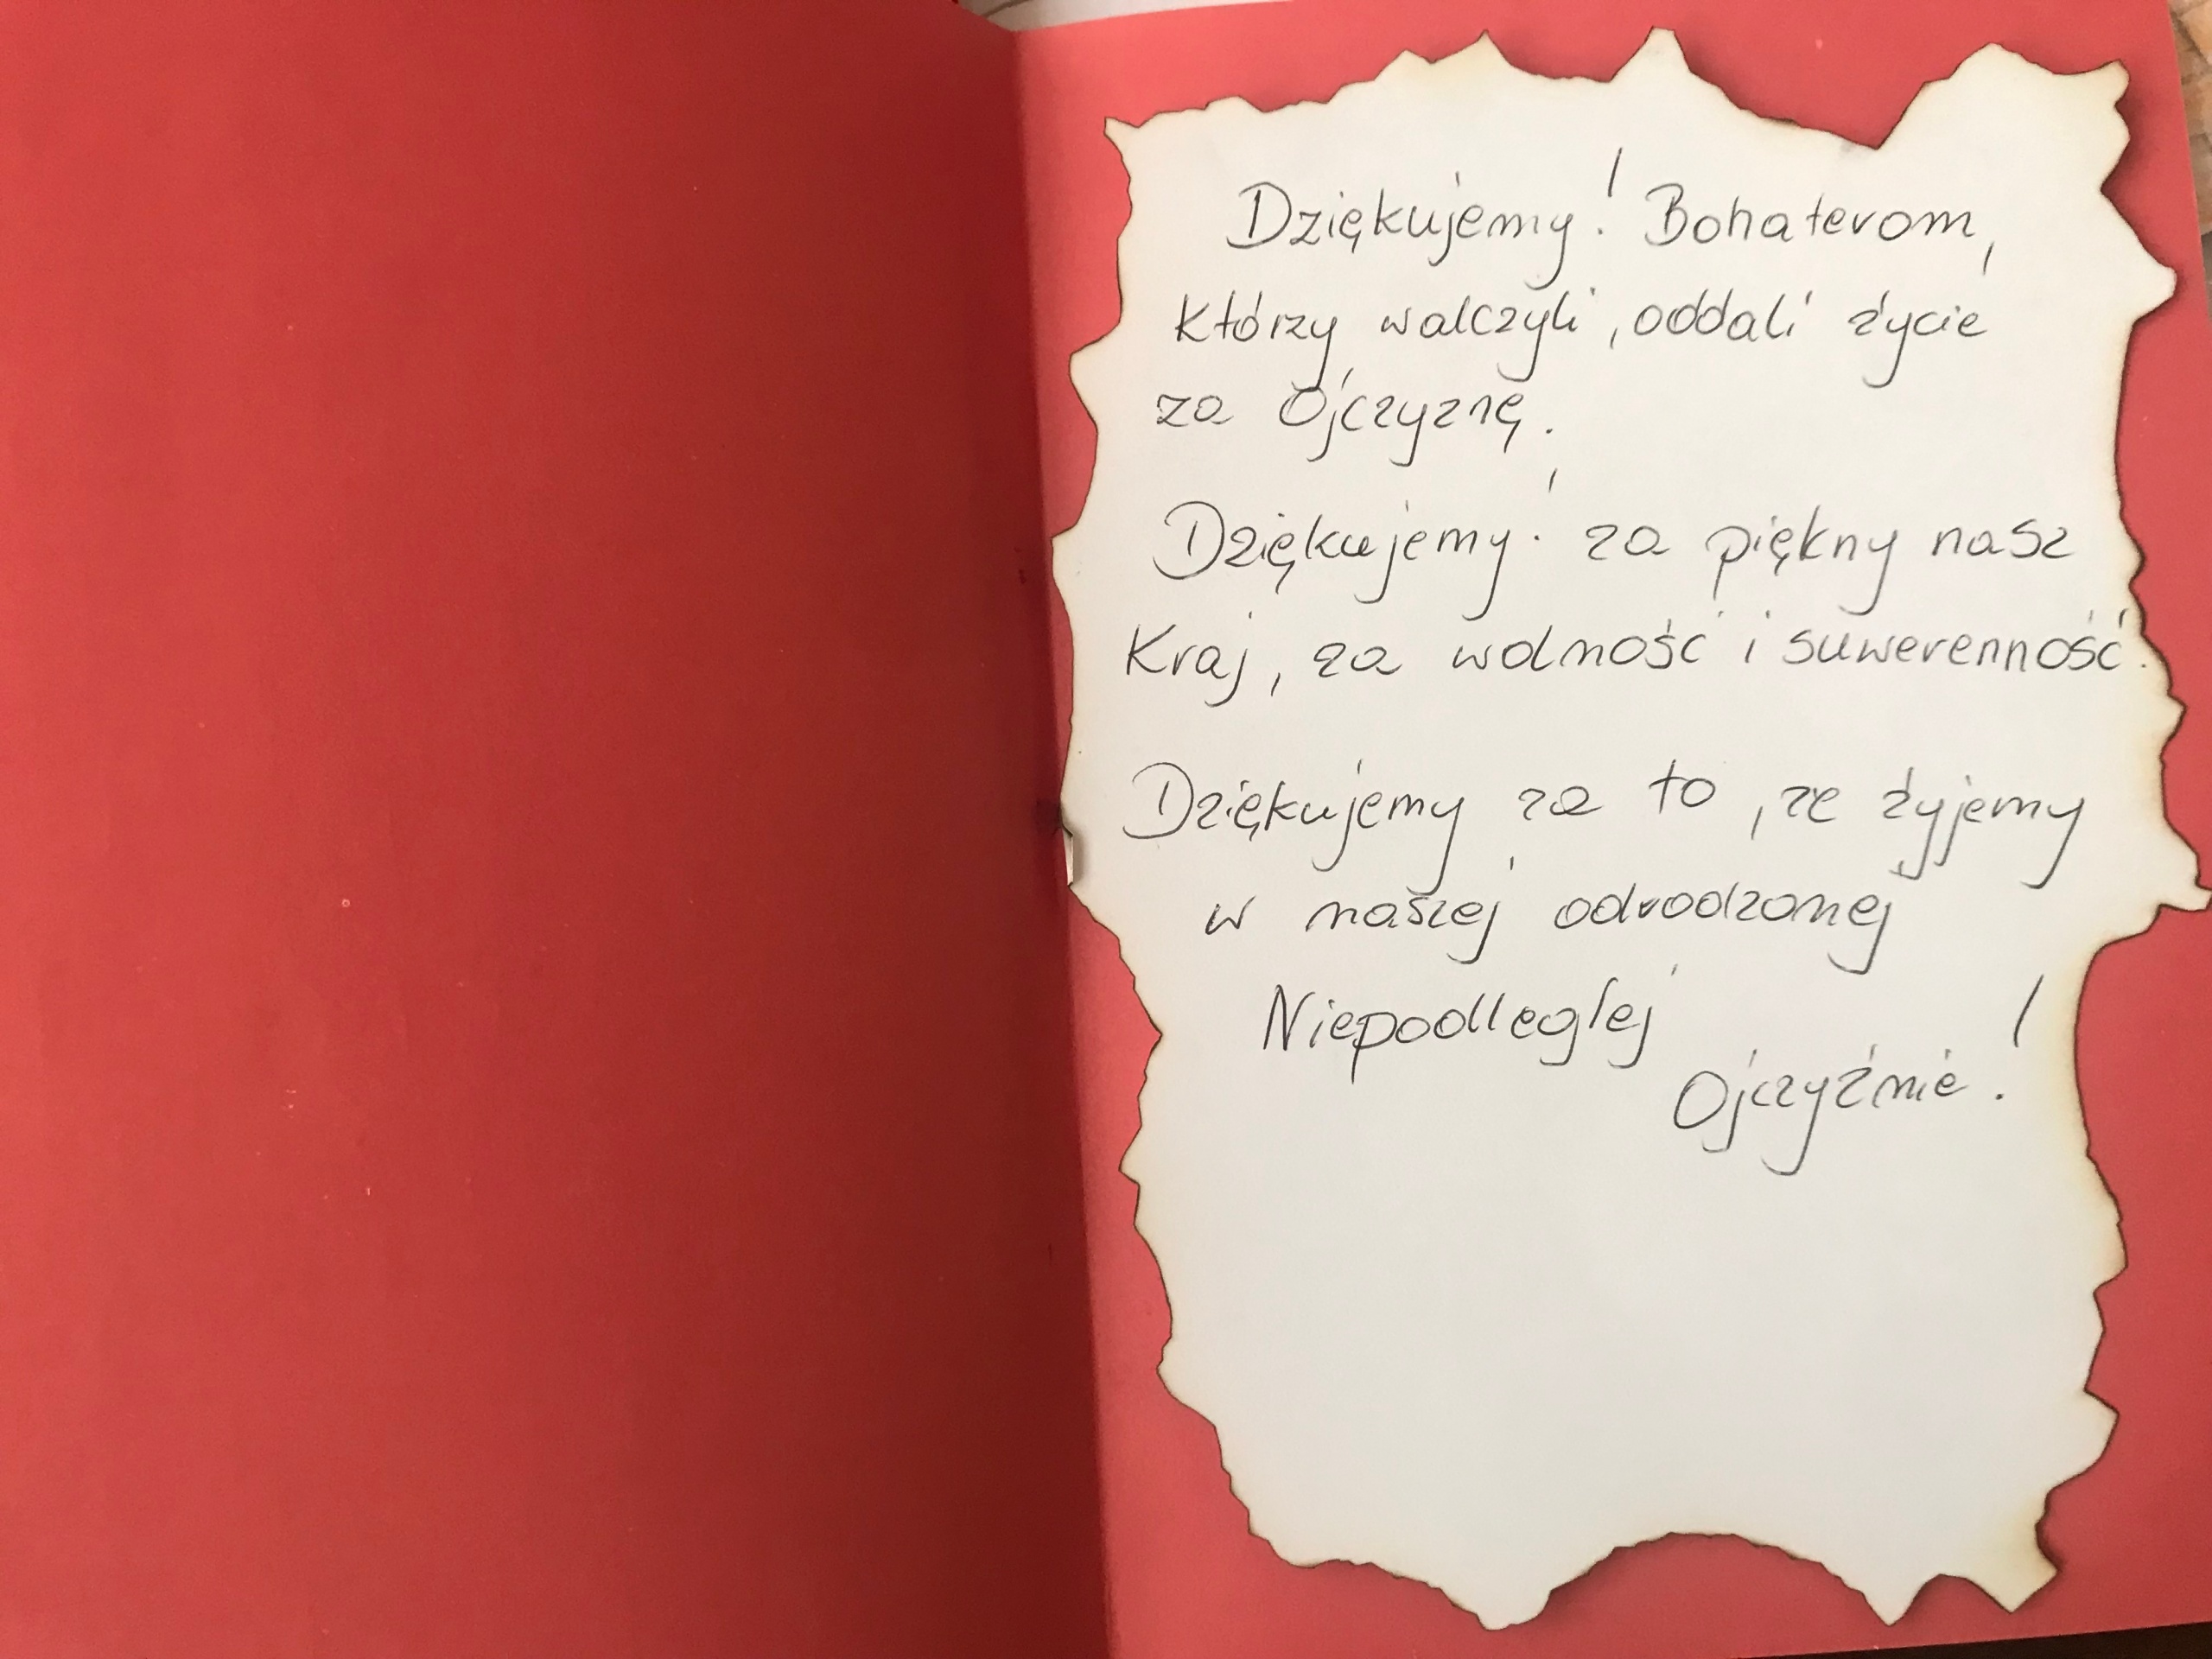 Dziękujemy! Bohaterom,
którzy walczyli, oddali życie
za Ojczyznę.
Dziękujemy! za piękny nasz
Kraj, za wolność i suwerenność.
Dziękujemy za to, ze żyjemy
w naszej odrodzonej
Niepodległej
Ojczyźnie!